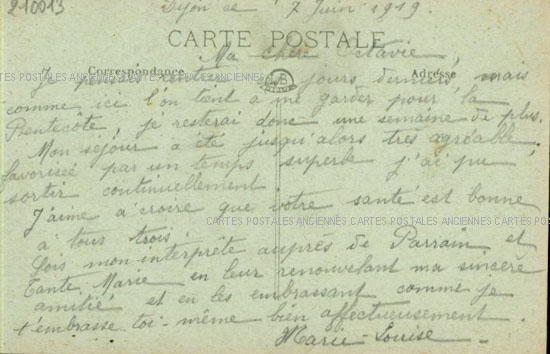 210013
Dijon ce 7 Juin 1919.
CARTE POSTALE
Ma chère Octavie
Correspondance
Adresse
Je pensais rentrer jours derniers, mais
CARTES POSTALES ANCIENNES CARTES POSTALES ANCIENNES CARTES POSTALES
comme ici l'on tient à me garder pour la
Pentecôte je resterai donc une semaine de plus.
Mon séjour a été jusqu'alors très agréable
favorisée par un temps superbe j'ai pu
sortir continuellement
J'aime à croire que votre santé est bonne
CARTES POSTALES ANCIENNES CARTES POSTALES ANCIENNES CARTES POST
à tous trois.
Sois mon interprète auprès de Parrain et
Tante Marie en leur renouvelant ma sincère
amitié et en les embrassant comme je
t'embrasse toi-même bien affectueusement.
Marie-Louise